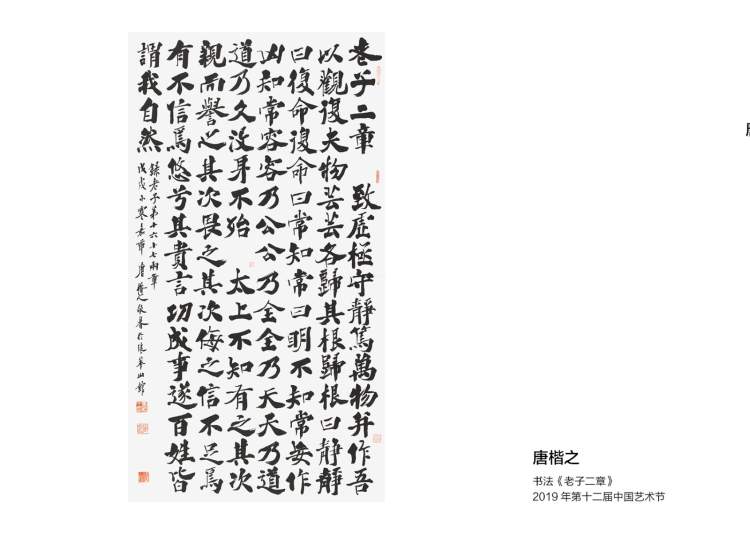 老子二章 致虛極守靜篤萬物并作吾
以觀復夫物芸芸各歸其根歸根曰靜靜
曰復命復命曰常知常曰明不知常妄作
凶知常容容乃公公乃全全乃天天乃道
道乃久沒身不殆 太上不知有之其次
親而譽之其次畏之其次侮之信不足焉
有不信焉悠兮其貴言功成事遂百姓皆
謂我自然
錄老子第十六十七兩章
戊戌小寒 唐楷之敬書於 山館
唐楷之
书法《老子二章》
2019 年第十二届中国艺术节